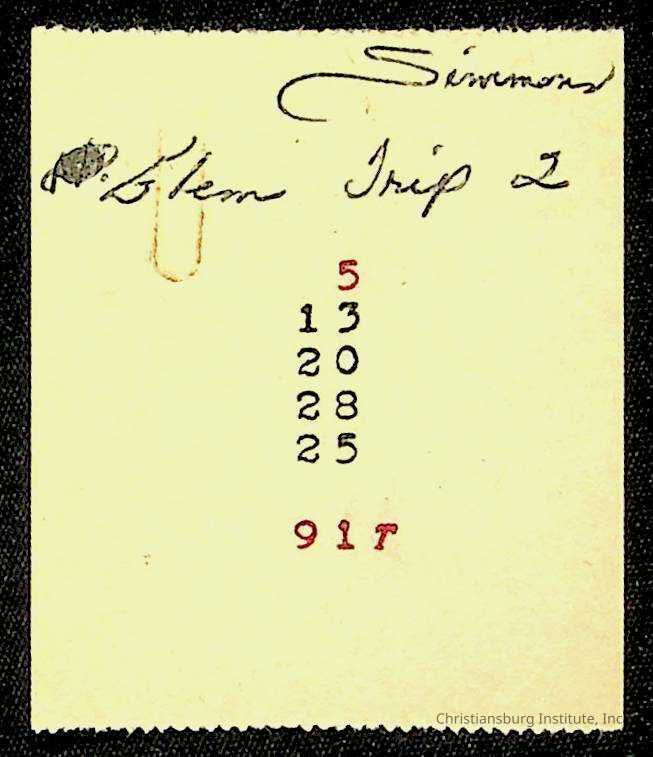 Simmons
Elem Trip 2
5
13
20
28
25
91T
Christiansburg Institute, Inc